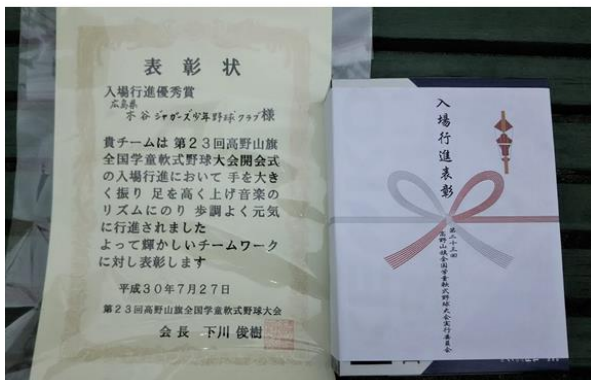 表彰状
入場行進優秀賞
広島県
木谷ジャガーズ少年野球クラブ様
貴チームは第23回高野山旗
全国学童軟式野球大会開会式
の入場行進において手を大き
く振り足を高く上げ音楽の
リズムにのり歩調よく元気
に行進されました
よって輝かしいチームワーク
に対し表彰します
平成30年7月27日
第23回高野山旗全国学童軟式野球大会
会長 下川俊樹
入場行進表彰
第二十三回
高野山旗全国学童軟式野球大会実行委員会